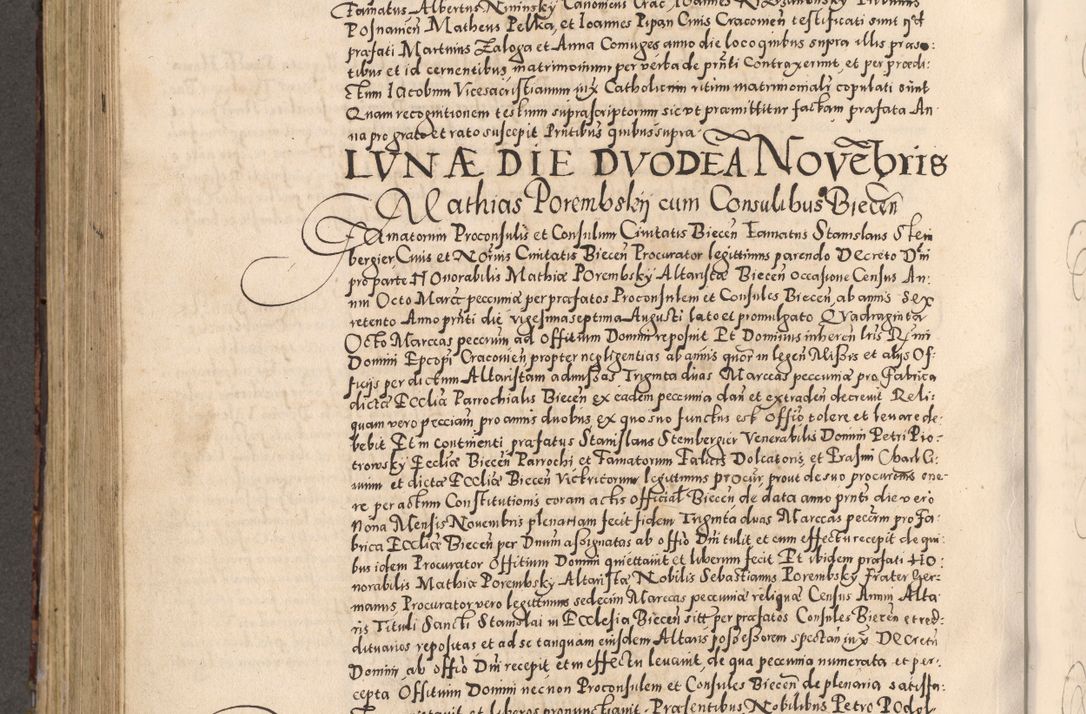 Famatus Albertus Nininsky Canonicus Crac Ioannes
Posnamen̄ Matheus Pelka, et Ioannes Pipan Ciuis Cracouien̄ testificati sunt
præfati Martinus Zaloga et Anna Coniuges anno die loco quibus supra illis præsē
tibus et id cernentibus matrimonium per verba de pr̄nti Contraxerunt, et per prædi:
ctum Iacobum Vicesacristianum iux Catholicum ritum matrimonialr̄ copulati sunt
Quam recognitionem testium suprascriptorum sicvt præmittitur factam præfata An
na pro grato et rato suscepit Prn̄tibus quibus supra
LVNÆ DIE DVODEC̄A NOVĒbris
Mathias Porembskij cum Consulibus Biecen̄
Famatorum Proconsulis et Consulum Ciuitatis Biecen̄ Famatus Stanislaus Stem
bergier Ciuis et Notrius Ciuitatis Biecen̄ Procurator legittimus parendo Decreto Dn̄i
pro parte Honorabilis Mathiæ Porembsky Altaristæ Biecen̄ occasione Census An
nui Octo Marcȩ pecuniæ per præfatos Proconsulem et Consules Biecen̄, ab annis sex
retento Anno prn̄ti die vigesima septima Augusti lato et promulgato Quadraginta
Octo Marccas peccum̄ ad Offitium Domini reposuit Et Dominus inheren̄ lris Rmi
Domini Epcopi Cracouien̄ propter negligentias ab annis quor̄ in legen̄ Missis et alijs Of:
ficijs per dictum Altaristam admissas Triginta duas Marccas peccuniæ pro fabrica
dictæ Eccliæ Parrochialis Biecen̄ ex eadem peccunia dari et extraden̄ decreuit Reli:
quam vero pecciam pro annis duobus ex quo suo functus est offio tolere et leuare de:
bebit Et in continenti præfatus Stanislaus Stembergier Venerabilis Domini Petri Pio:
trowsky Eccliæ Biecen̄ Parrochi et Famatorum Falicis Dolcatoris, et Erasmi
et dictæ Eccliæ Biecen̄ Victricorum legittimus procur̄ prout de suo procurañis one:
re per actum Constitutionis coram actis official Biecen̄ de data anno prn̄ti die vero
Nona Mensis Nouembris plenariam fecit fidem Triginta duas Marccas peccun̄ pro fa:
brica Eccliæ Biecen̄ per Dnum assignatas ab offio Dn̄i tulit et cum effectu recepit de qui:
bus idem Procurator Offitium Domini quiettauit et liberum fecit Et ibidem præfati Ho:
norabilis Mathiæ Porembsky Altaristæ Nobilis Sebastianus Porembsky Frater Ger:
manus Procurator vero legittimus sedecim Marccas peccuniæ reliquæ Census Annui Alta
ris Tituli Sancti Stanislai in Ecclesia Biecen̄ siti per præfatos Consules Biecen̄ et red:
dituarios repositas et ad se tanquam eiusdem Altaris possessorem spectan̄ iux Decretu
Domini, ab offio Dn̄i recepit et in effectu leuauit, de qua peccunia numerata et per:
cepta Offitium Domini nec non Proconsulem et Consules Biecen̄ de plenaria satisfa:
quietauit et liberos pronunctiauit. Præsentibus Nobilibus Petro Podol